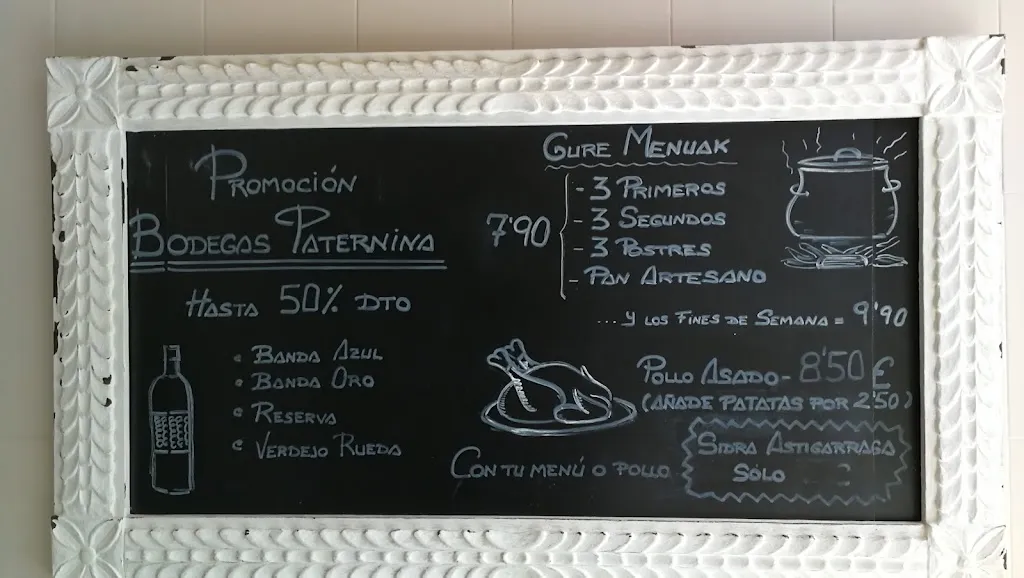 Promoción
Bodegas Paternina
Hasta 50% DTO
Banda Azul
Banda Oro
Reserva
Verdejo Rueda
Gure Menuak
7'90
- 3 Primeros
- 3 Segundos
- 3 Postres
- Pan Artesano
... y los Fines de Semana = 9'90
Pollo Asado - 8'50 €
(Añade patatas por 2'50)
Con tu menú o pollo
Sidra Astigarraga
Sólo